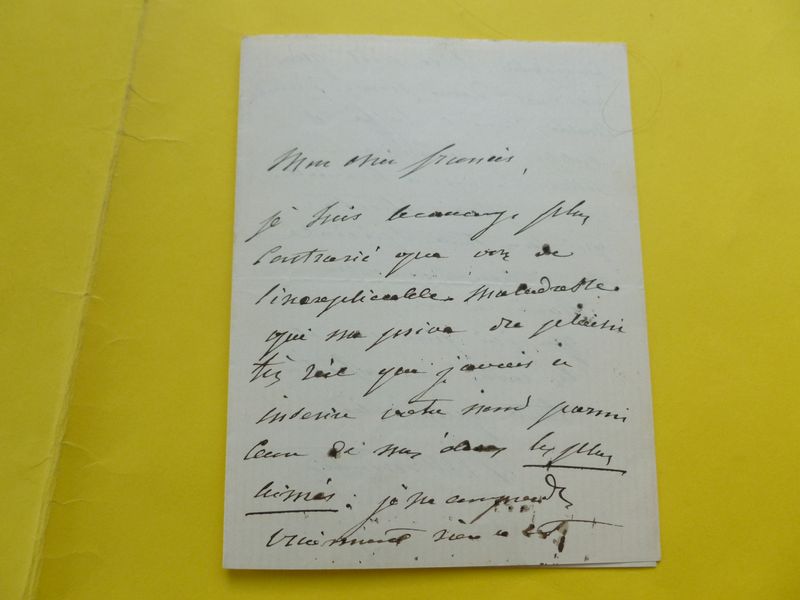 Mon cher francis,
je suis beaucoup plus
contrarié que vous de
l'inexplicable maladresse
qui me prive du plaisir
très réel que j'avais à
inscrire votre nom parmi
ceux de nos les plus
aimés. je ne comprends
vraiment rien a